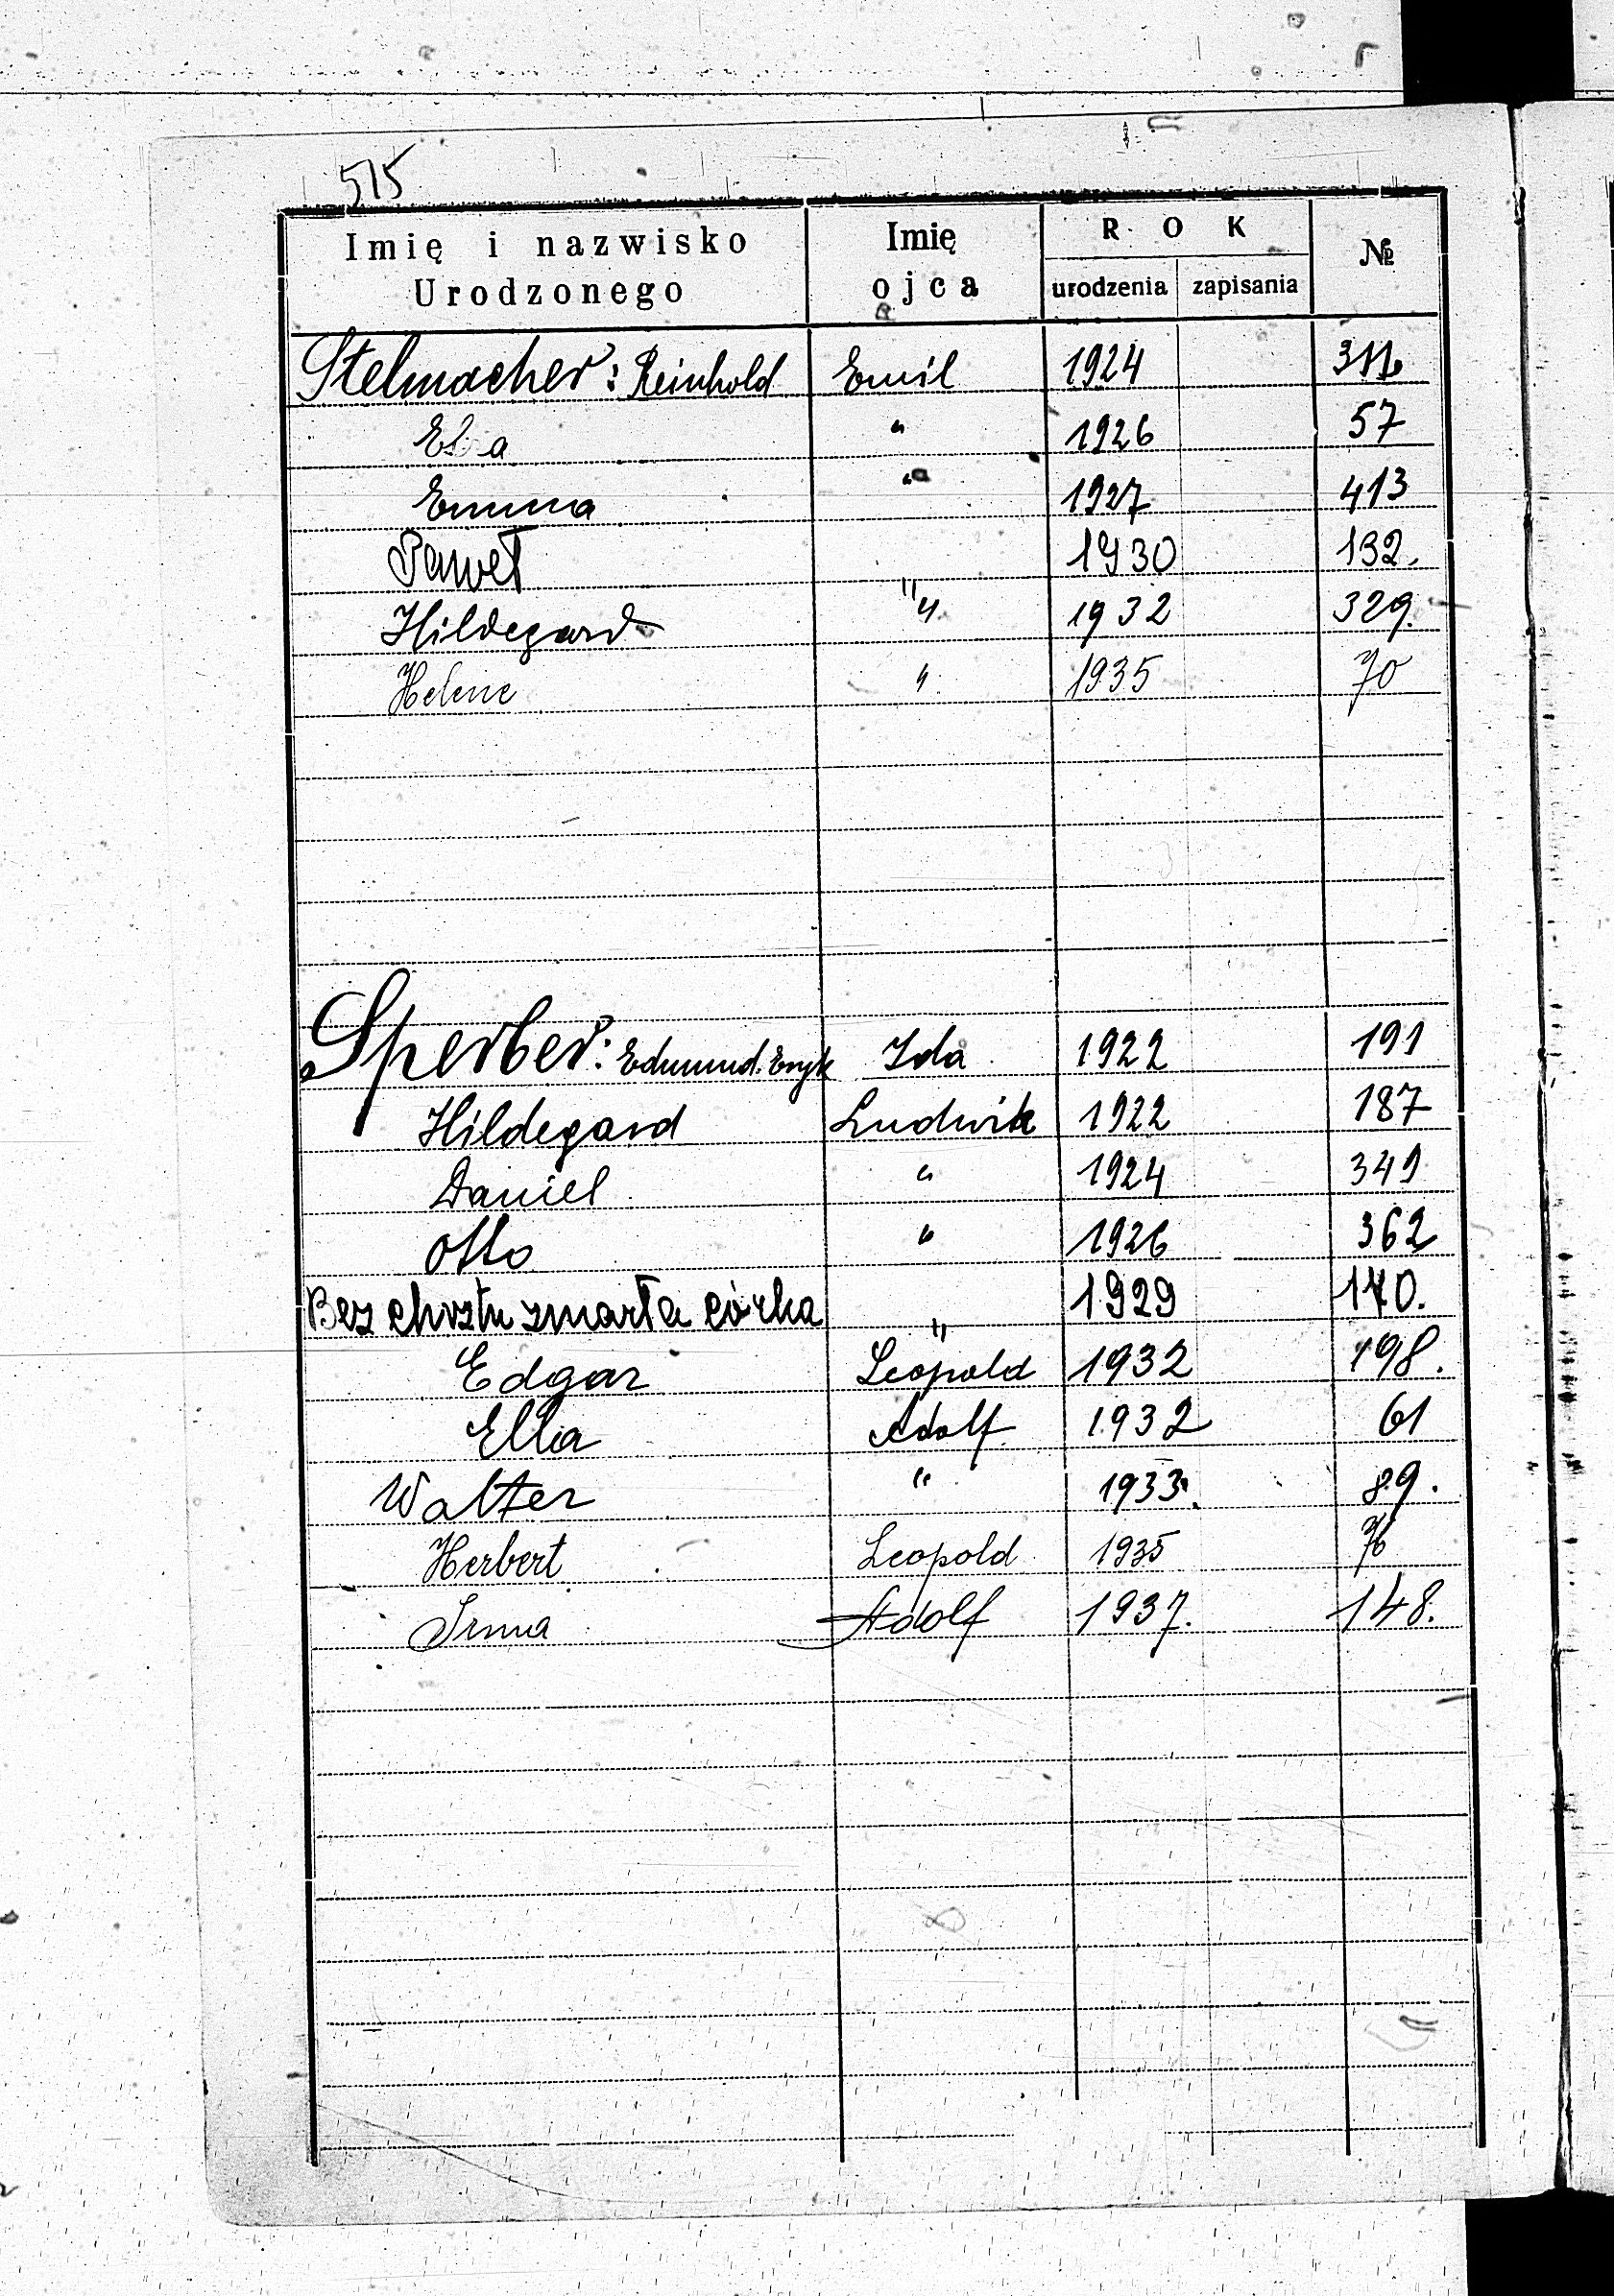 515
Imię i nazwisko Urodzonego Imię ojca ROK urodzenia zapisania №
Stelmacher: Reinhold Emil 1924
" 1926 57
Emma " 1927 413
Paweł " 1930 132.
Hildegard " 1932 329.
Helene " 1935 70
Sperber: Edmund Eryk Ida 1922 191
Hildegard Ludwik 1922 187
Daniel " 1924 349
Otto " 1926 362
Bez chrztu zmarła córka " 1929 140.
Edgar Leopold 1932 198.
Ella Adolf 1932 61
Walter " 1933. 89.
Herbert Leopold 1935 76
Irma Adolf 1937. 148.